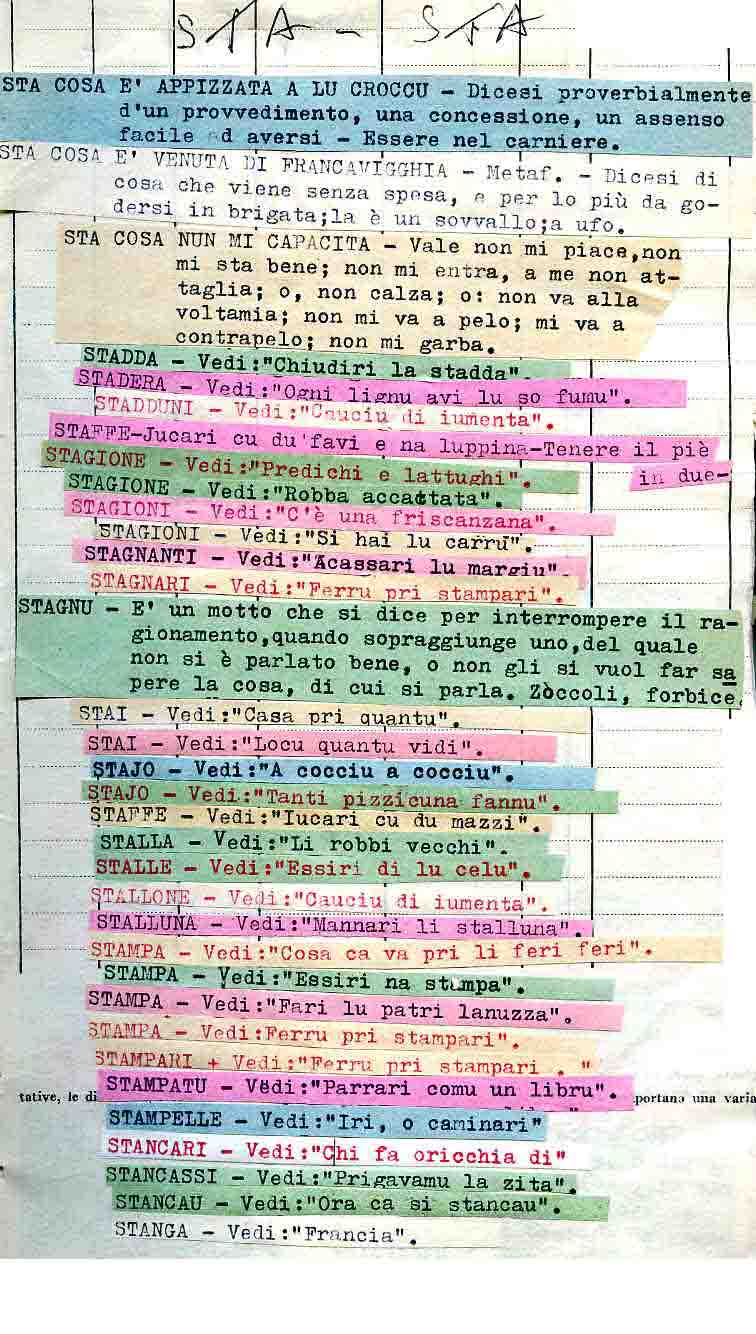 STA - STA
STA COSA E' APPIZZATA A LU CROCCU - Dicesi proverbialmente
d'un provvedimento, una concessione, un assenso
facile ad aversi - Essere nel carniere.
STA COSA E' VENUTA DI FRANCAVIGGHIA - Metaf. - Dicesi di
cosa che viene senza spesa, e per lo più da go-
dersi in brigata;la è un sovvallo;a ufo.
STA COSA NUN MI CAPACITA - Vale non mi piace,non
mi sta bene; non mi entra, a me non at-
taglia; o, non calza; o: non va alla
voltamia; non mi va a pelo; mi va a
contrapelo; non mi garba.
STADDA - Vedi:"Chiudiri la stadda".
STADERA - Vedi:"Ogni lignu avi lu so fumu".
STADDUNI - Vedi:"Cauciu di iumenta".
STAFFE-Jucari cu du'favi e na luppina-Tenere il piè
in due-
STAGIONE - Vedi:"Predichi e lattughi".
STAGIONE - Vedi:"Robba accattata".
STAGIONI - Vedi:"C'è una friscanzana".
STAGIONI - Vedi:"Si hai lu carru".
STAGNANTI - Vedi:"Acassari lu margiu".
STAGNARI - Vedi:"Ferru pri stampari".
STAGNU - E' un motto che si dice per interrompere il ra-
gionamento,quando sopraggiunge uno,del quale
non si è parlato bene, o non gli si vuol far sa
pere la cosa, di cui si parla. Zòccoli, forbice.
STAI - Vedi:"Casa pri quantu".
STAI - Vedi:"Locu quantu vidi".
STAJO - Vedi:"A cocciu a cocciu".
STAJO - Vedi:"Tanti pizzicuna fannu".
STAFFE - Vedi:"Iucari cu du mazzi".
STALLA - Vedi:"Li robbi vecchi".
STALLE - Vedi:"Essiri di lu celu".
STALLONE - Vedi:"Cauciu di iumenta".
STALLUNA - Vedi:"Mannari li stalluna".
STAMPA - Vedi:"Cosa ca va pri li feri feri".
STAMPA - Vedi:"Essiri na stampa".
STAMPA - Vedi:"Fari lu patri lanuzza".
STAMPA - Vedi:Ferru pri stampari".
STAMPARI + Vedi:"Ferru pri stampari . "
STAMPATU - Vedi:"Parrari comu un libru".
tative, le di portano una varia
STAMPELLE - Vedi:"Iri, o caminari"
STANCARI - Vedi:"Chi fa oricchia di"
STANCASSI - Vedi:"Prigavamu la zita".
STANCAU - Vedi:"Ora ca si stancau".
STANGA - Vedi:"Francia".